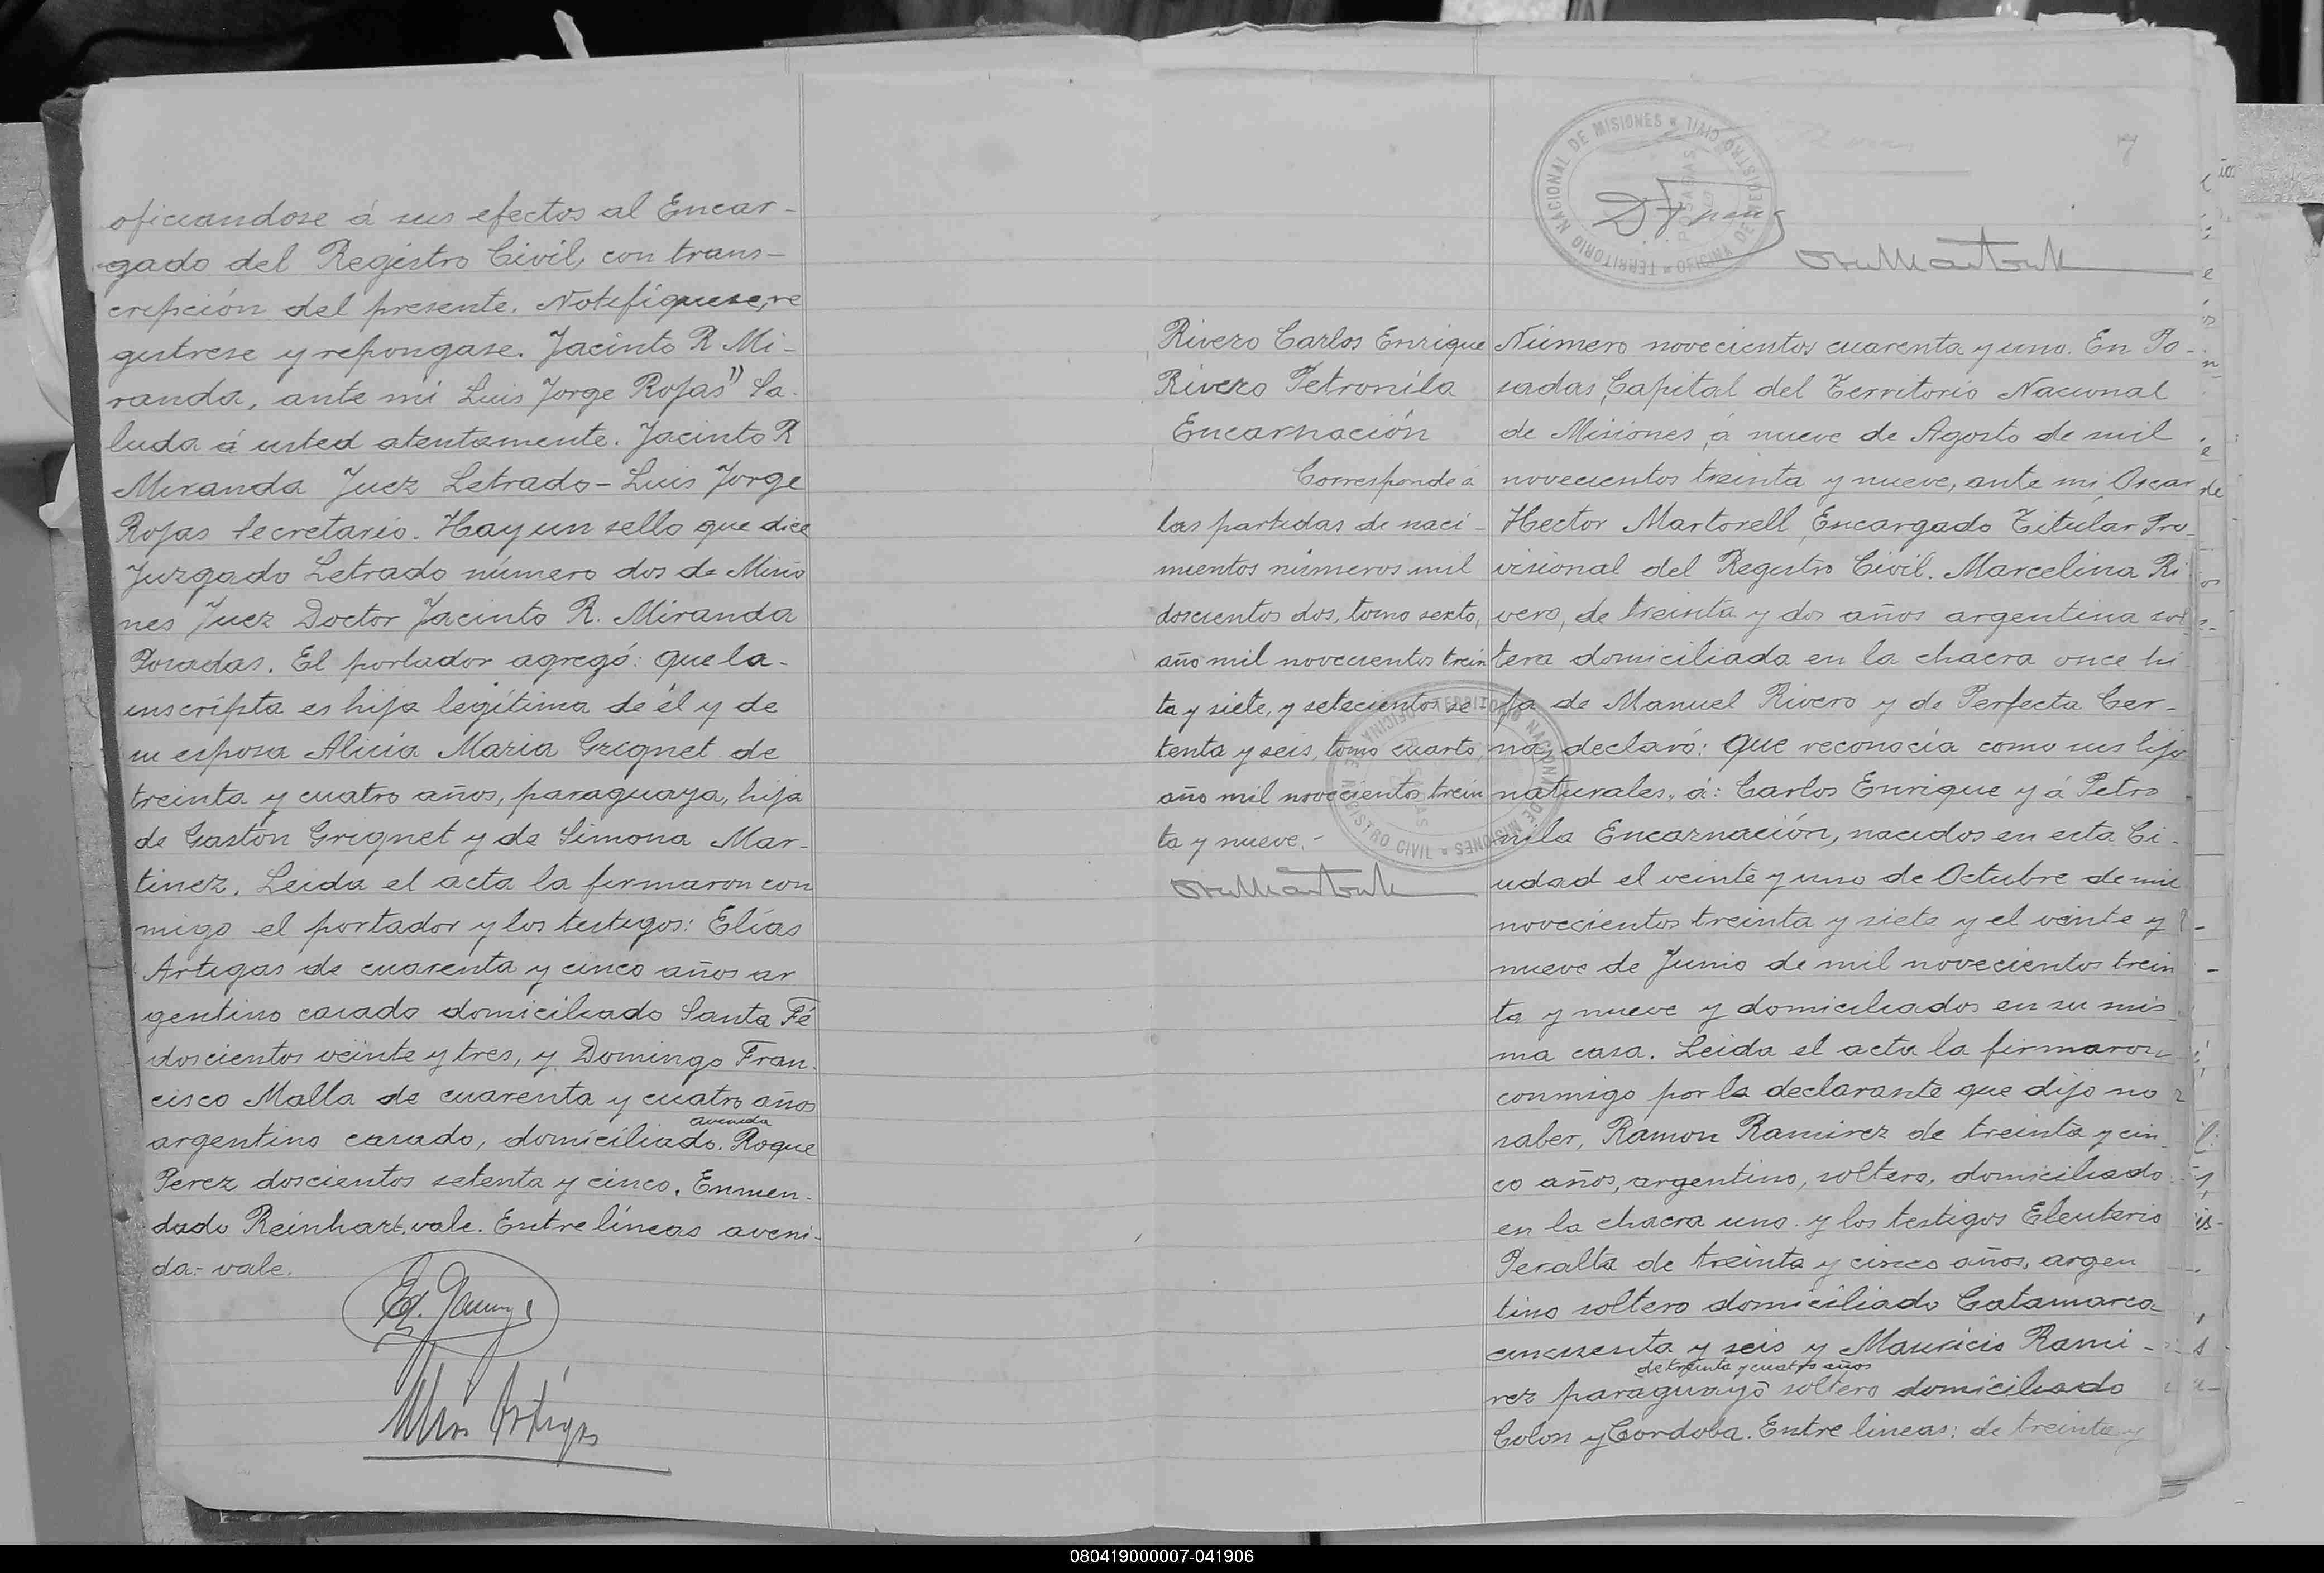 oficiandose á sus efectos al Encar-
gado del Registro Civil, con trans-
cripción del presente. Notifíquese, re
gistrese y repongase. Jacinto R Mi-
randa, ante mi Luis Jorge Rojas" Sa-
luda á usted atentamente. Jacinto R
Miranda Juez Letrado - Luis Jorge
Rojas Secretario. Hay un sello que dice
Juzgado Letrado número dos de Misio
nes Juez Doctor Jacinto R. Miranda
Posadas. El portador agregó: que la-
inscripta es hija legítima de él y de
su esposa Alicia Maria Grignet de
treinta y cuatro años, paraguaya, hija
de Gaston Grignet y de Simona Mar-
tinez. Leida el acta la firmaron con
migo el portador y los testigos: Elías
Artigas de cuarenta y cinco años ar
gentino casado domiciliado Santa Fé
doscientos veinte y tres, y Domingo Fran-
cisco Malla de cuarenta y cuatro años
avenida
argentino casado, domiciliado. Roque
Perez doscientos setenta y cinco. Enmen-
dado Reinhart. vale. Entre líneas aveni-
da- vale.
Elias Artigas
7
TERRITORIO NACIONAL DE MISIONES * OFICINA DE REGISTRO CIVIL
POSADAS
Rivero Carlos Enrique
Rivero Petronila
Encarnación
Corresponde á
las partidas de naci-
mientos números mil
doscientos dos, tomo sexto,
año mil novecientos trein
ta y siete, y setecientos se
tenta y seis, tomo cuarto,
año mil novecientos trein
ta y nueve.-
TERRITORIO NACIONAL DE MISIONES * OFICINA DE REGISTRO CIVIL
POSADAS
Número novecientos cuarenta y uno. En Po-
sadas, Capital del Territorio Nacional
de Misiones, á nueve de Agosto de mil
novecientos treinta y nueve, ante mi, Oscar
Hector Martorell, Encargado Titular Pro-
visional del Registro Civil. Marcelina Ri
vero, de treinta y dos años argentina sol
tera domiciliada en la chacra once hi
ja de Manuel Rivero y de Perfecta Cer-
na, declaró: que reconocia como sus hijo
naturales, á: Carlos Enrique y á Petro
nila Encarnación, nacidos en esta Ci-
udad el veinte y uno de Octubre de mil
novecientos treinta y siete y el veinte y
nueve de Junio de mil novecientos trein
ta y nueve y domiciliados en su mis-
ma casa. Leida el acta la firmaron
conmigo por la declarante que dijo no
saber, Ramon Ramirez de treinta y cin
co años, argentino, soltero, domiciliado
en la chacra uno. y los testigos Eleuterio
Peralta de treinta y cinco años, argen
tino soltero domiciliado Catamarca-
cincuenta y seis y Mauricio Rami-
de treinta y cuatro años
rez paraguayo soltero domiciliado
Colon y Cordoba. Entre lineas: de treinta y
080419000007-041906